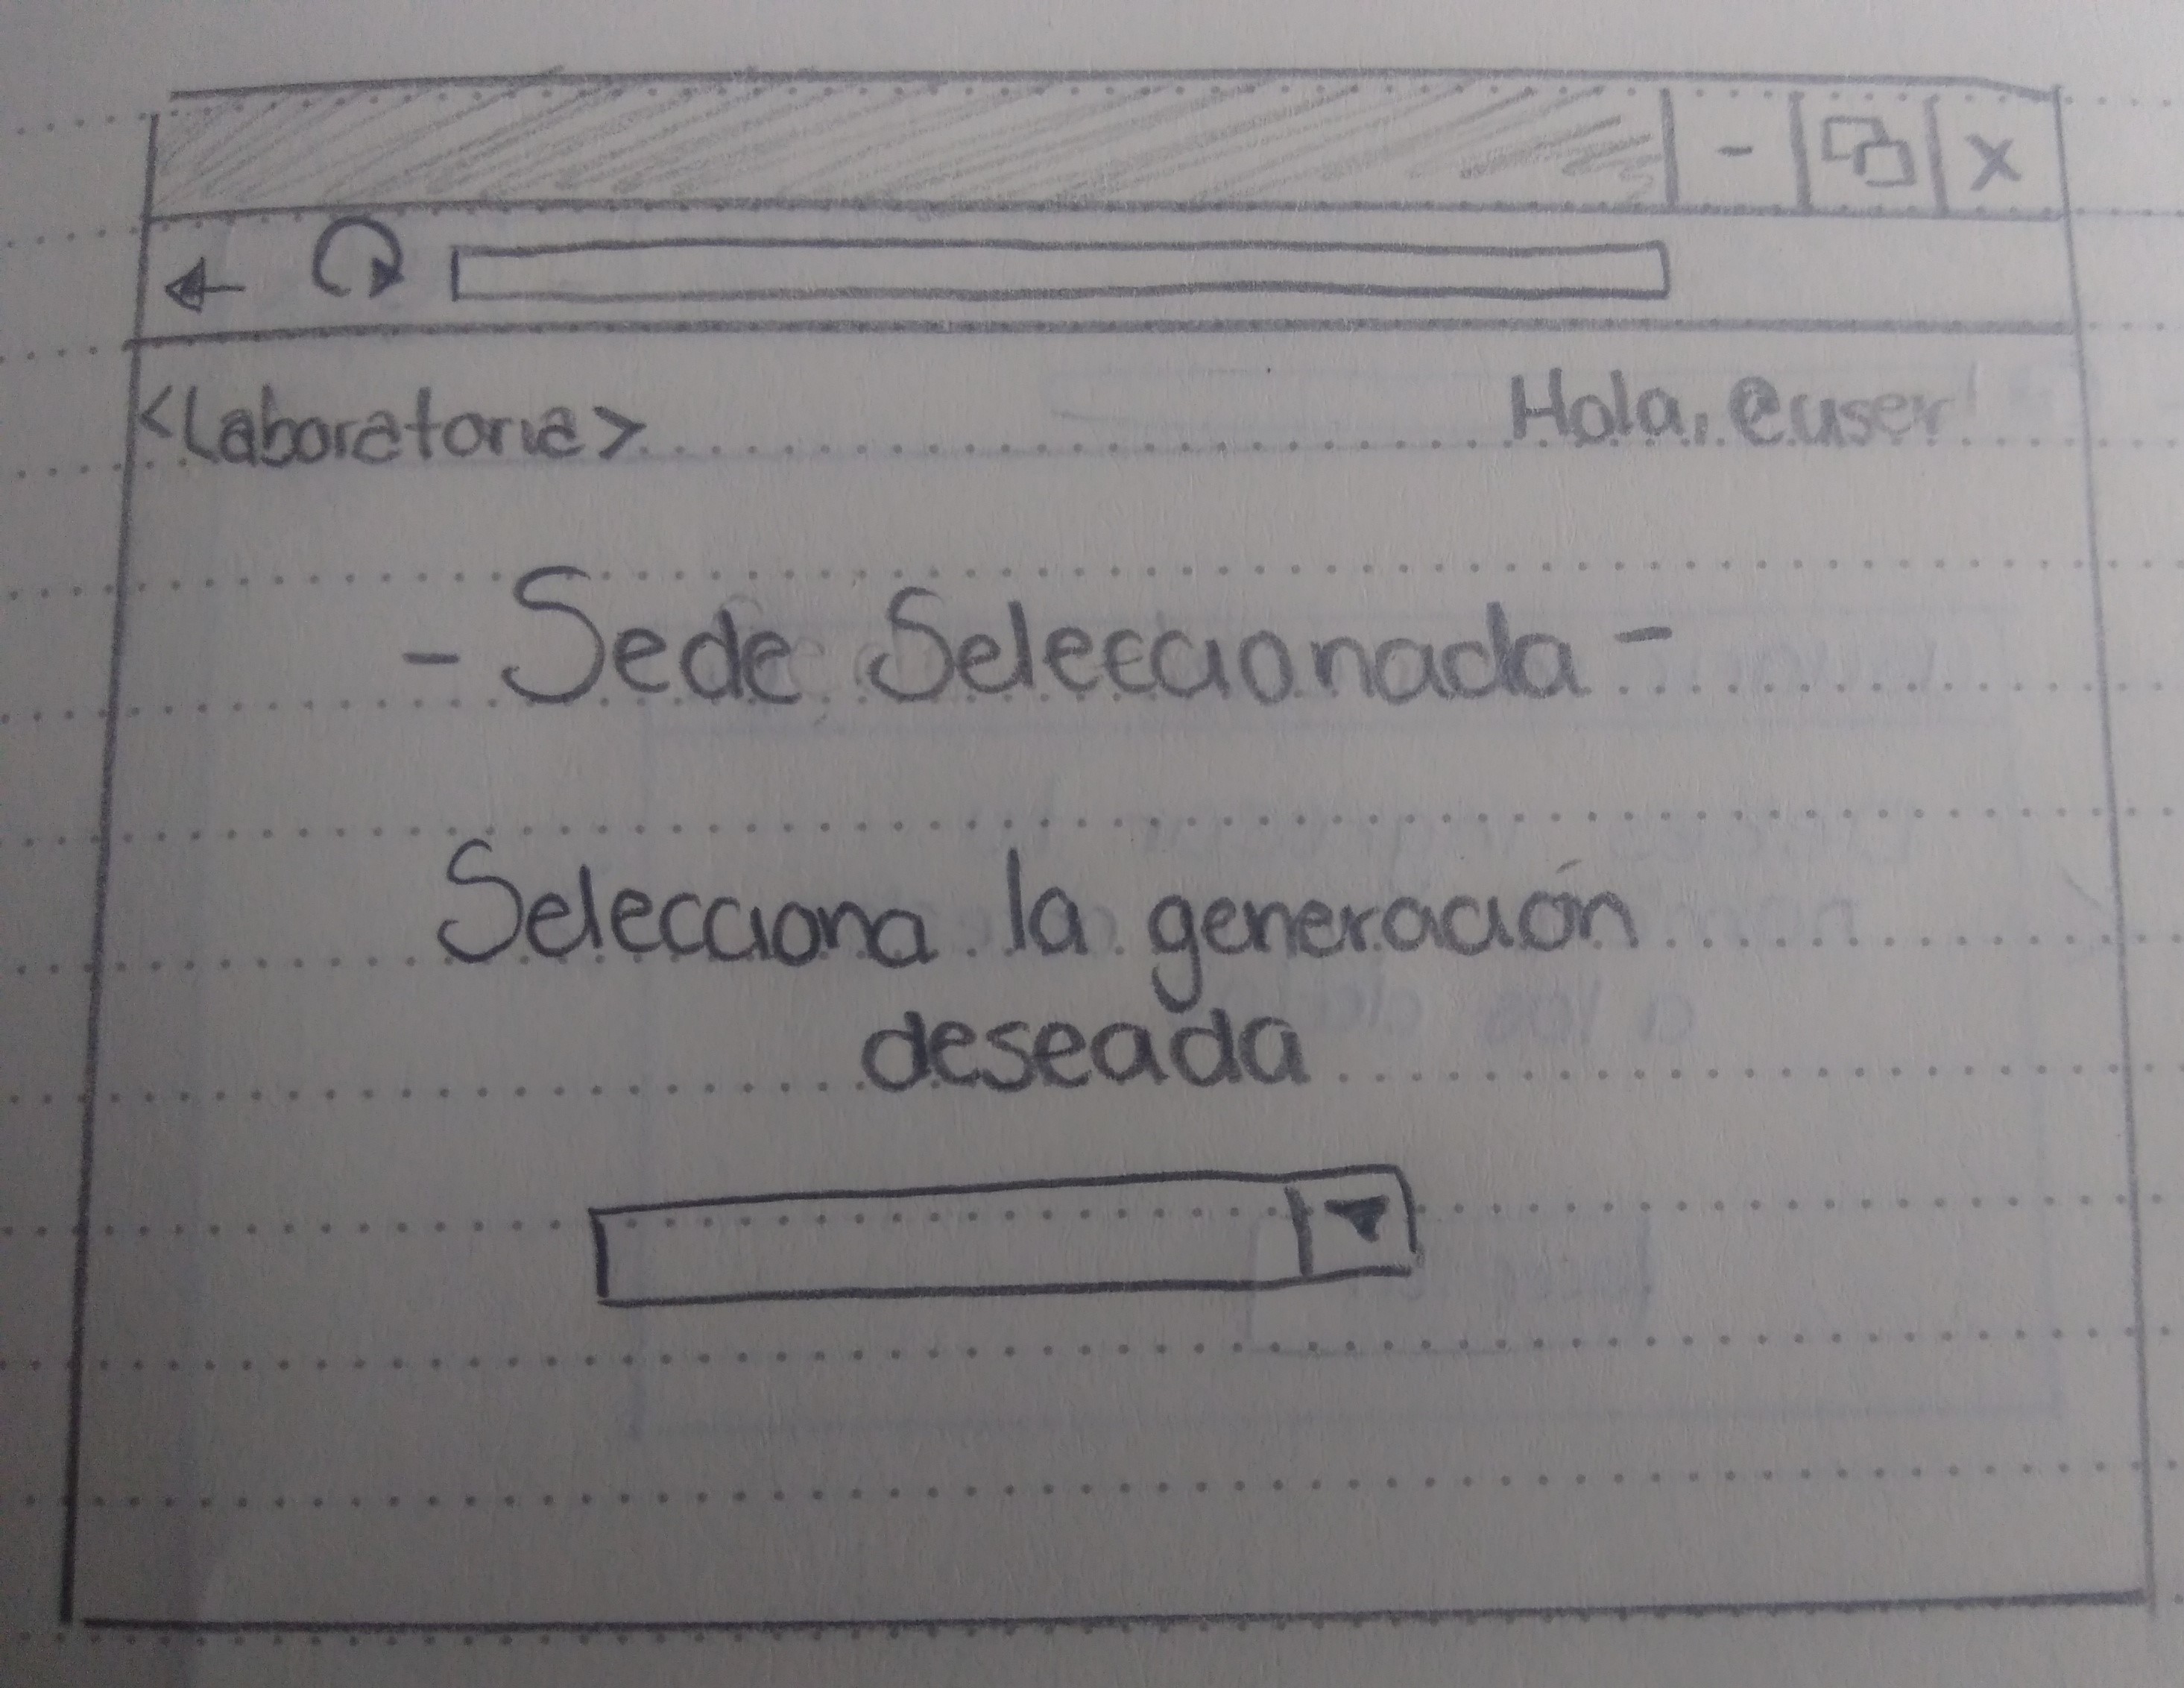 <Laboratoria> Hola, @user!
- Sede Seleccionada -
Selecciona la generación
deseada